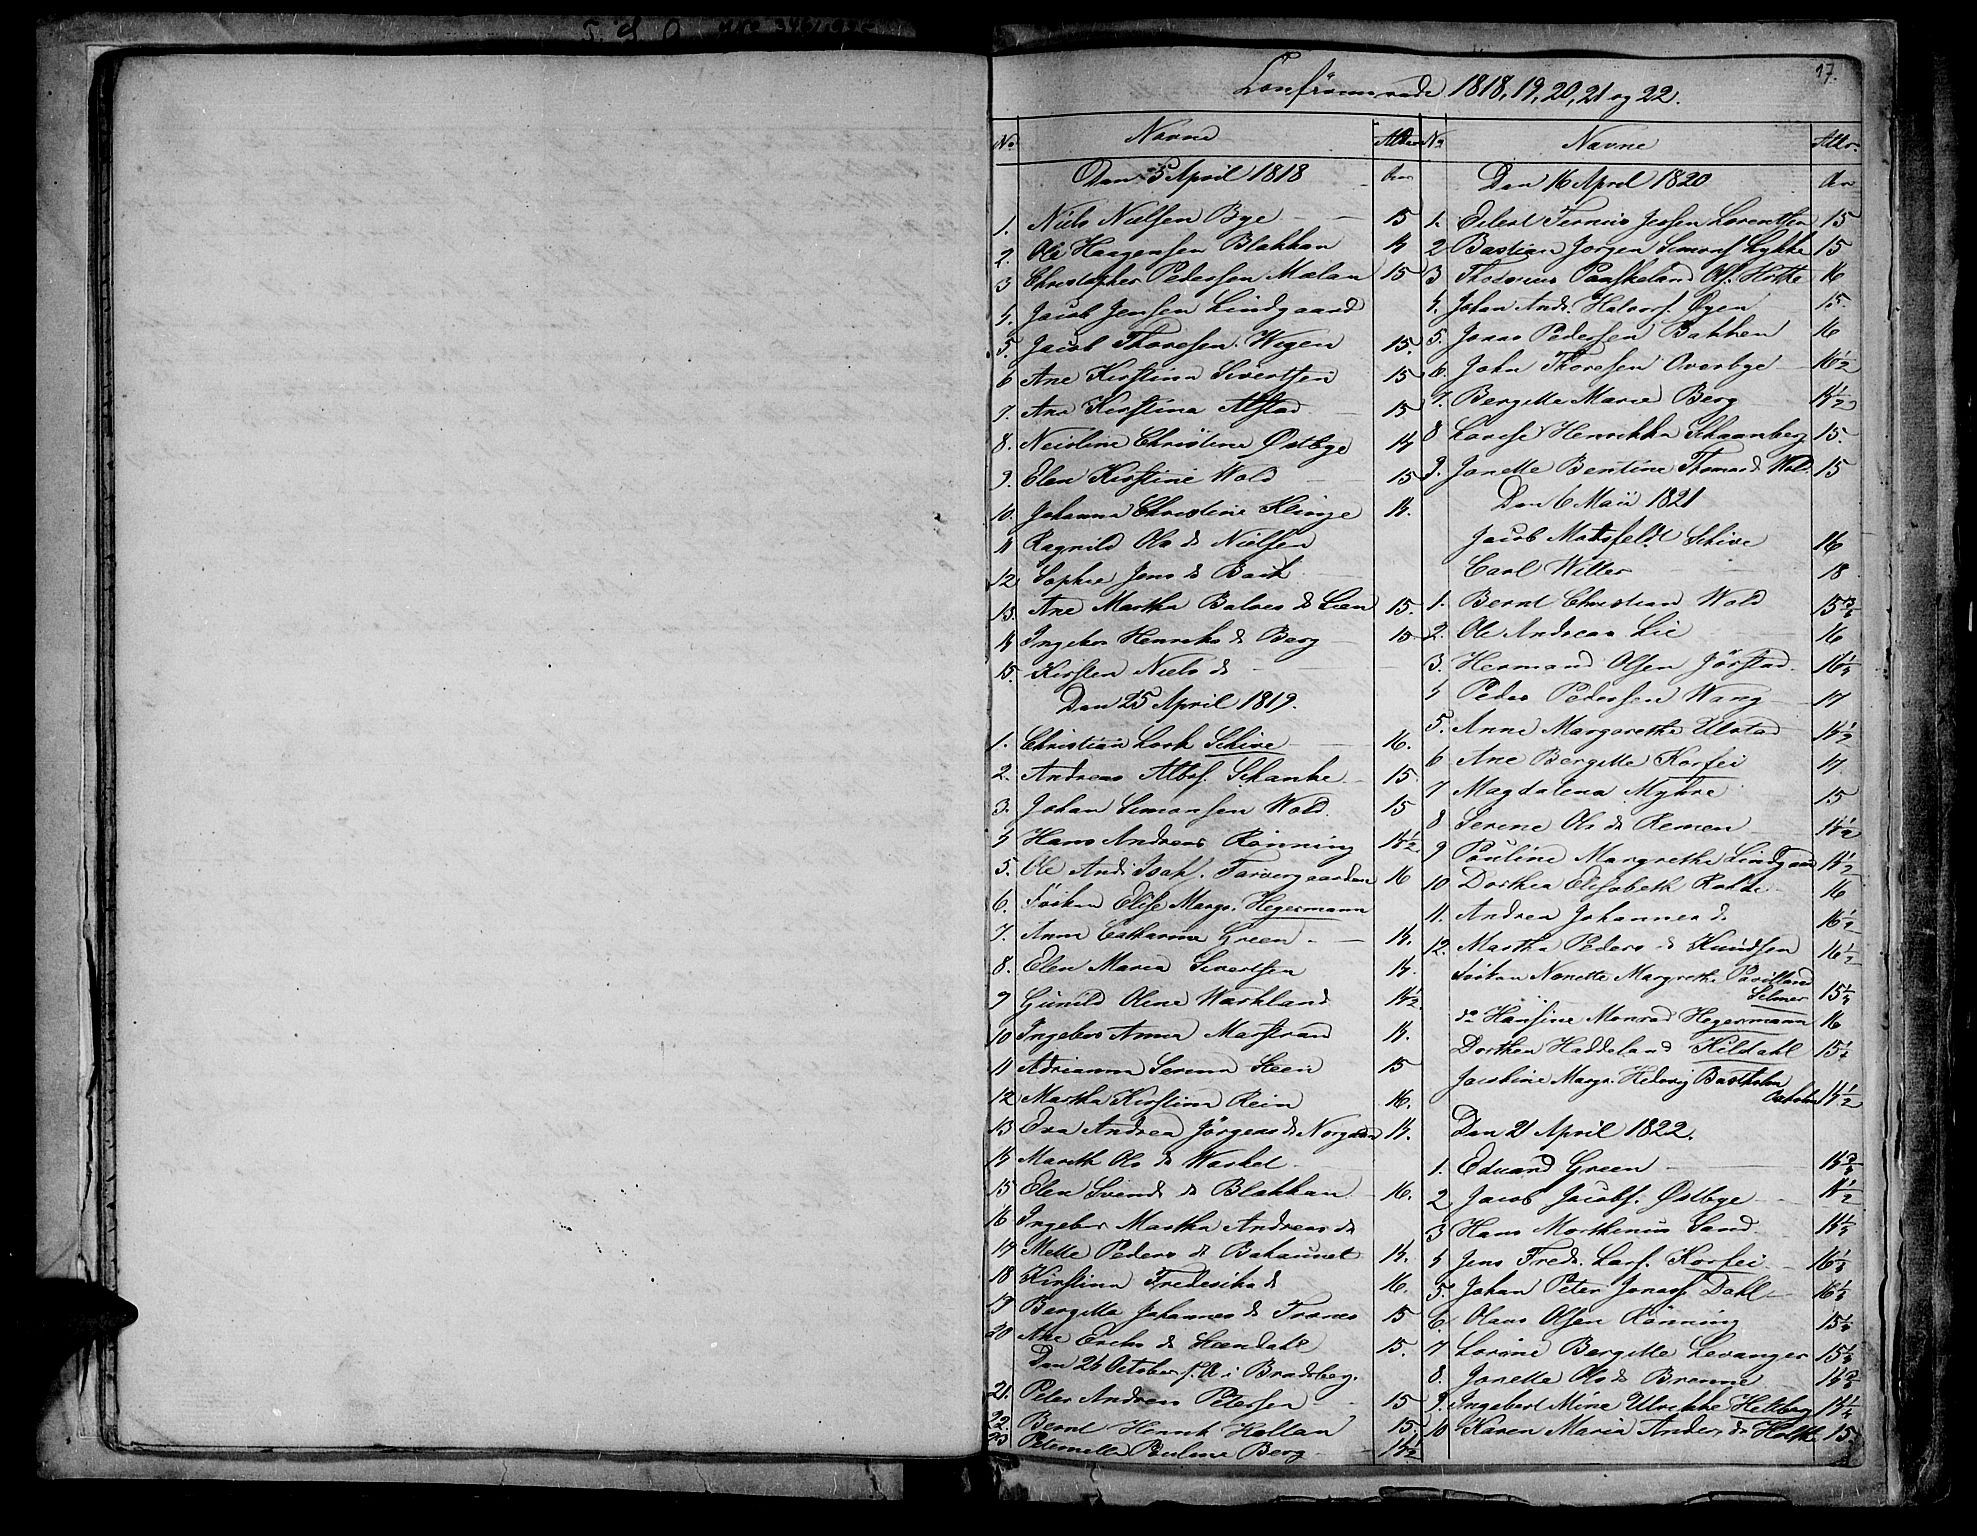 17.
Confirmerede 1818, 19, 20, 21 og 22.
No Navne Alder
Den 5 April 1818 Aar
1. Niels Nielsen Bye 15
2. Ole Haagensen Blakkan 14
3 Christopher Pedersen Malan 15
4. Jacob Jensen Lindgaard
5. Jacob Thoresen Wigen 15.
6 Ane Kirstina Sivertsen 15
7. Ane Kirstina Alstad 15
8. Christine Østbye 14
9. Elen Kirstine Wold 15
10. Johanna Christine Klinge 14.
11 Ragnild Ols d. Nielsen
12 Sophie Jens d. Bach
13. Ane Martha d. Lien 15.
14 Ingebor Henriks d. Berg 15
15. Kirsten Niels d.
Den 25 April 1819.
1. Christian Lork Schive 16.
2. Andreas Schanke 15.
3. Johan Simonsen Wold 15
4 Hans Andreas Rønning 14½.
5. Ole And. Isaks. 16
6. Frøken Elise Margr. Hegermann
7. Anne Catharina Green 14.
8. Elen Maria Sivertsen 14.
9 Gunild Olene 14½
10 Ingebor Anna Marstrand 14.
11 Adrianna Serena Steen 15
12 Martha Kirstina Rein 16.
13 Eva Andrea Jørgens d. 14.
14 Mareth Ols d. Waskel
15 Elen Svend d. Blakkan 16.
16 Ingebor Martha Andreas d.
17 Mette Peders d. 14.
18 Kirstina Frederiks d. 16.
19 Bergitta Johannes d. Tranes 15
20 Ane Erichs d. Steendahl 15.
Den 26 October s. A. i Bradsberg.
21. Peter Andreas Petersen 15
22. Bernt Henrik Hollan 15.
23 Peternelle Pauline Berg 14½
No Navne Alder
Den 16 April 1820 Aar
1. Eilert Jessen Lorentsen 15
2 Bastian Jørgen Simons. Lykke 15
3 Ols. Holte 16
4. Johan And. Halvors. Øyen 15.
5. Jonas Pedersen Bakken 16
6. John Thoresen Overbye 16½
7. Bergitte Marie Berg 14½
8 Lovise Henrikka Schaanberg 15.
9. Janette Bentine Thomas d. Wold 15
Den 6 Maii 1821
Jacob Matsfeldt Schive 16
Carl Witter 18
1. Bernt Christian Wold 15¾
2. Ole Andreas Lie 16
3. Hermand Olsen Jørstad 16¼
4 Peder Pedersen Wang 17
5. Anne Margarethe Ulstad 14½
6 Ane Bergitte Korsei 17.
7 Magdalena Myhre 15
8 Serine Ols d. Remen 14½
9 Pauline Margrethe Lindgaard 14½
10 Dorthea Elisabeth Rohde 16
11. Andrea Johannes d. 16½
12. Martha Peders d. Knudsen 16½
Frøken Nanette Margrethe
Selmer 15¼
do Hansine Monrad Hegermann 16
Dorthea Haddeland Kildahl 15½
Jacobine Margr. Hedevig Bastholm
14½
Den 21 April 1822.
1. Eduard Green 14¾
2 Jacob Jacobs. Østbye 14½
3 Hans Morthenius Sand 14¼
4 Jens Fred. Lars. Korsei 16¼
5. Johan Peter Jonass. Dahl 16¼
6 Olaus Olsen Rønning 15¼
7 Lorine Bergitte Levanger 15¼
8. Janette Ols d. Brenne 16¾
9. Ingebert Mine Ulrikke Helberg 14¼
10 Karen Maria Anders d. Holte 15.